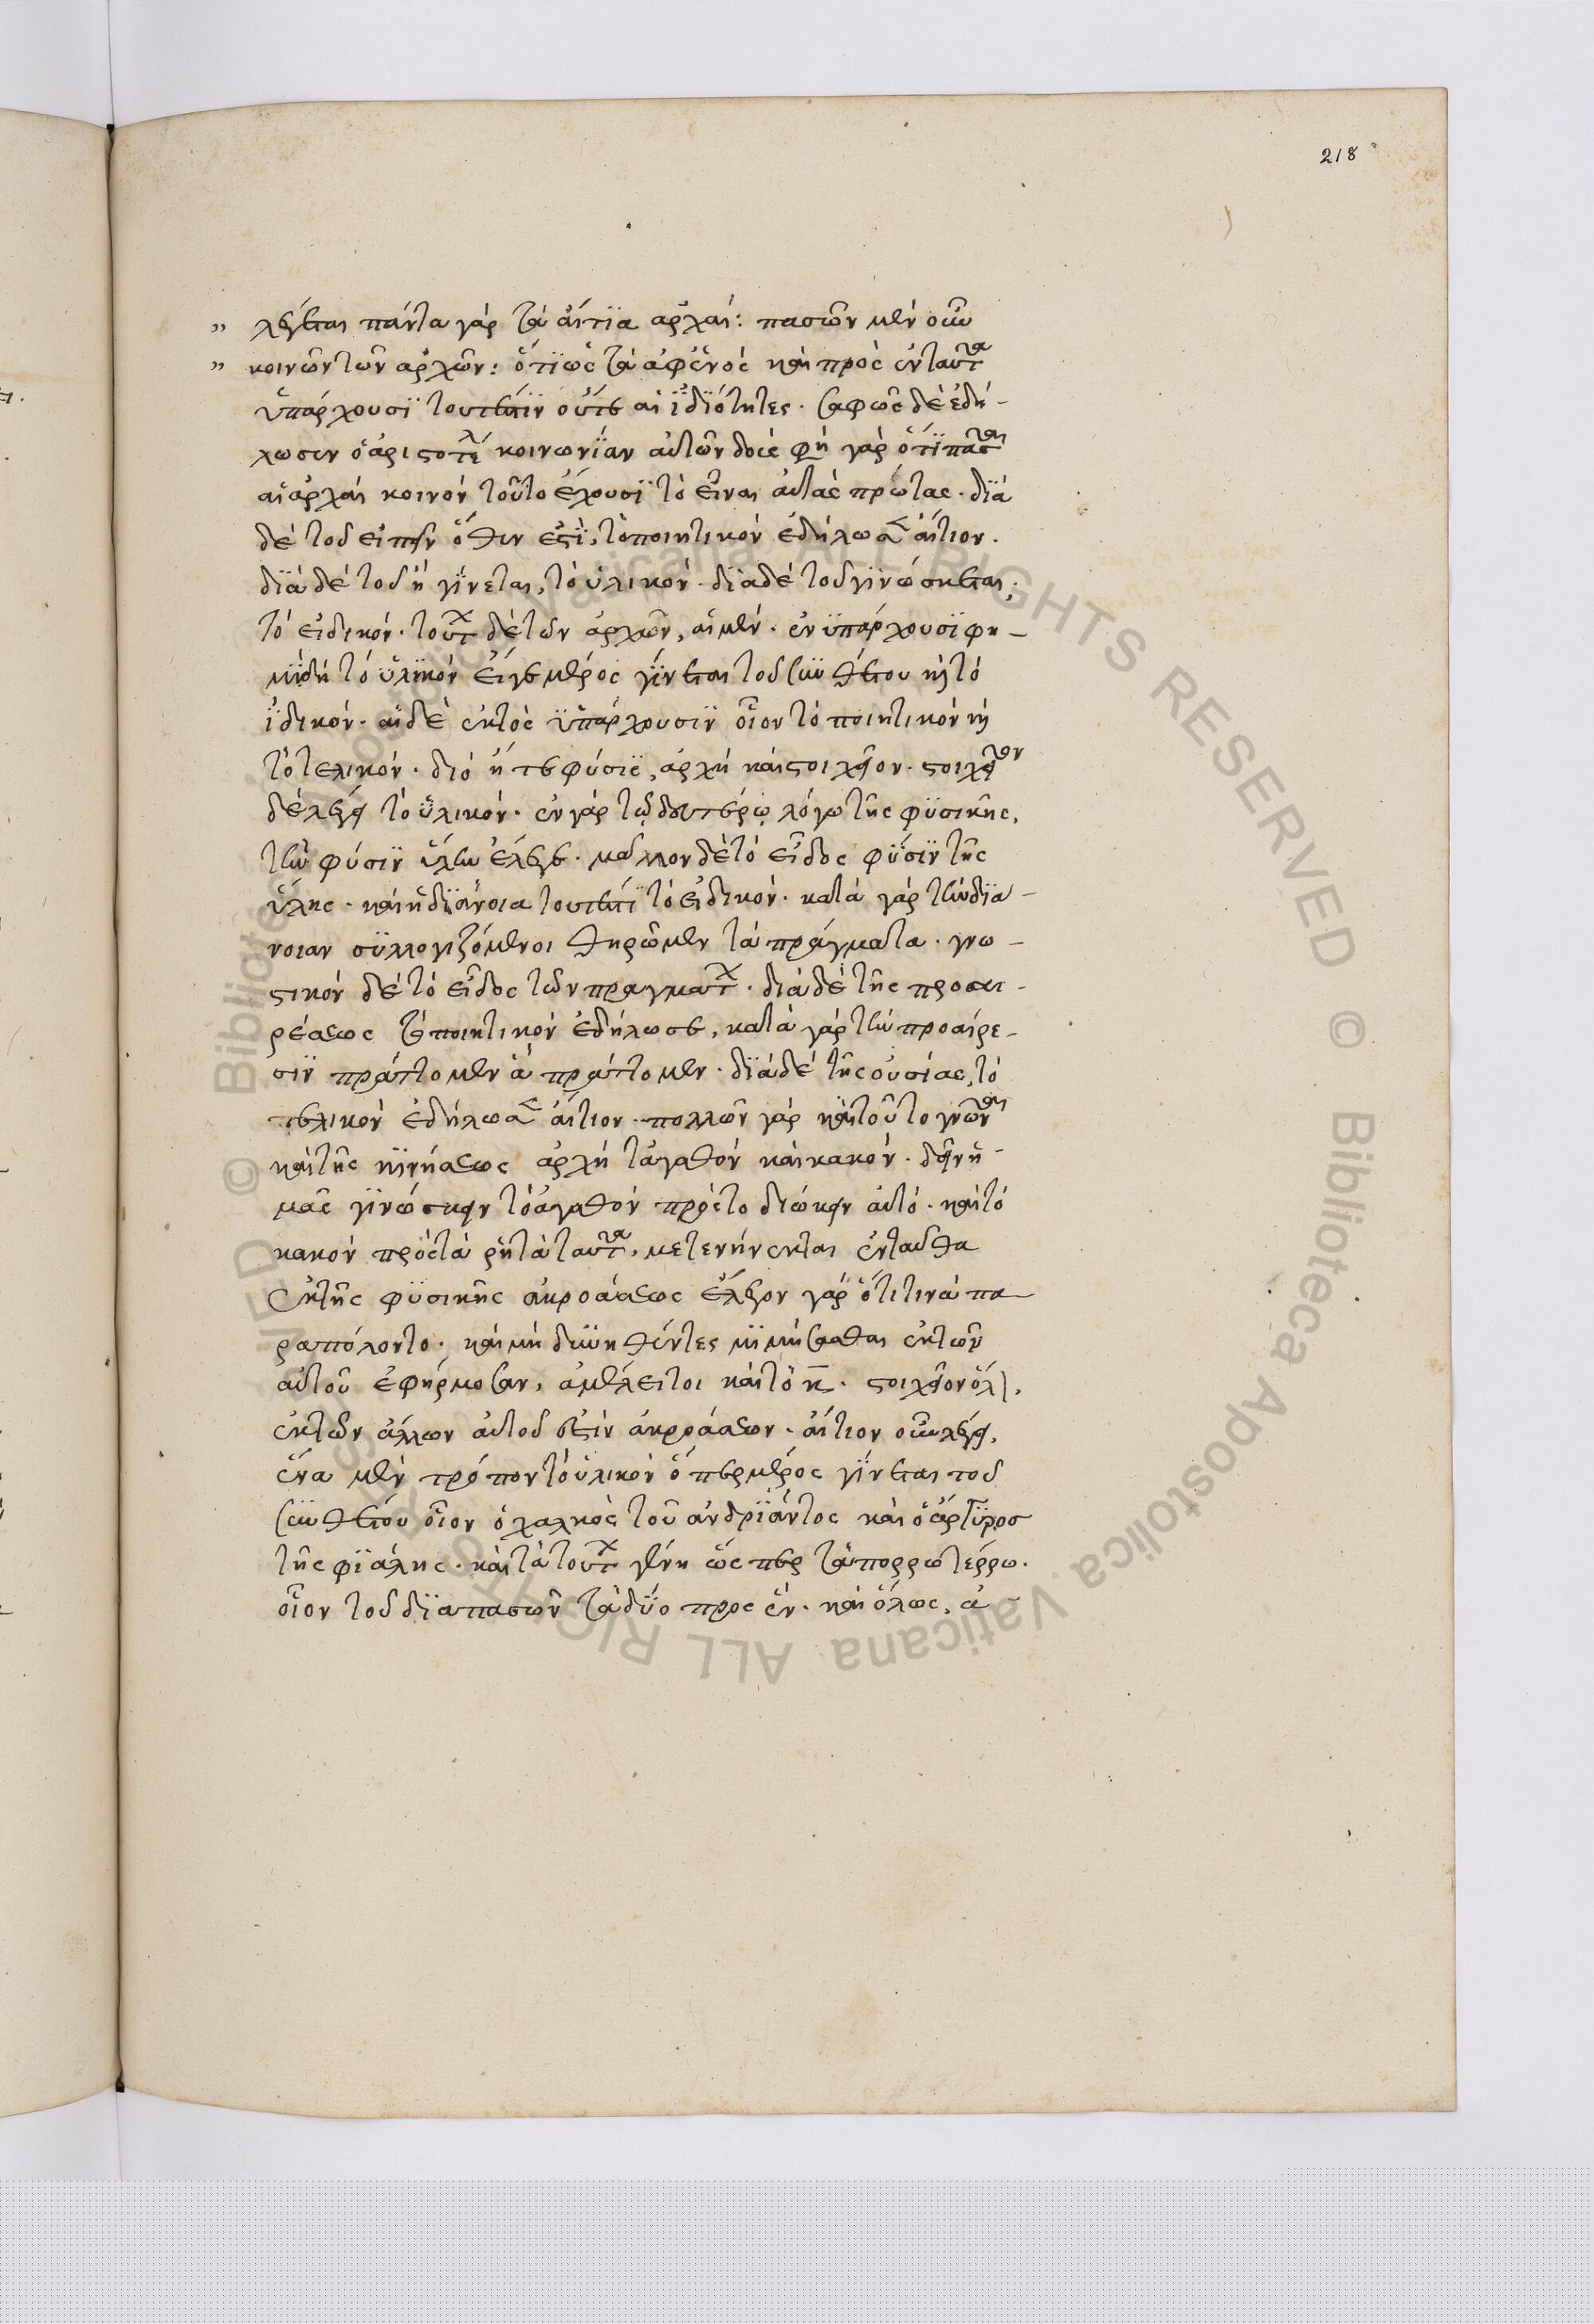 218
" λέγεται πάντα γὰρ τὰ αἴτϊα ἀρχαί: πασῶν μὲν οὖν
" κοινὸν τῶν ἀρχῶν: ὅτϊ ὡς τὰ ἀφ' ἑνὸς καὶ πρὸς ἓν ταῦτα
ὑπάρχουσϊ τουτέστϊν οὔτε αἱ ἰδϊότητες. σαφῶς δὲ ἐδή-
λωσεν ὁ ἀριστοτέλ κοινωνΐαν αὐτῶν δοὺς φη γὰρ ὅτϊ πᾶσαι
αἱ ἀρχαὶ κοινὸν τοῦτο ἔχουσϊ τὸ εἶναι αὐτὰς πρώτας. δϊὰ
δὲ τοῦ εἰπεῖν ὅθεν ἐστΐ, τὸ ποιητικὸν ἐδήλωσεν αἴτιον.
δϊὰ δὲ τοῦ ἢ γΐνεται, τὸ ὑλικόν. δϊὰ δὲ τοῦ γϊνώσκεται;
τὸ εἰδικόν. τούτων δὲ τῶν ἀρχῶν, αἱ μὲν. ἐνϋπάρχουσϊ φη-
μϊ δὴ τὸ ὑλϊκὸν εἴγε μέρος γΐνεται τοῦ συνθέτου καὶ τὸ
ἰδικόν. αἱ δὲ ἐκτὸς ὑπάρχουσϊν οἷον τὸ ποιητικὸν καὶ
τὸ τελικόν. διὸ ἥ τε φύσις, ἀρχὴ καὶ στοιχεῖον. στοιχεῖον
δὲ λέγει τὸ ὑλικόν. ἐν γὰρ τῷ δευτέρῳ λόγω τῆς φϋσικῆς,
τὴν φύσϊν ὕλην ἔλεγε. μᾶλλον δὲ τὸ εἶδος φύσϊν τῆς
ὕλης. καὶ ἡ δϊάνοια τουτέστϊ τὸ εἰδικόν. κατὰ γὰρ τὴν δϊά-
νοιαν συλλογιζόμενοι θηρῶμεν τὰ πράγματα. γνω-
στικὸν δὲ τὸ εἶδος τῶν πραγμάτων. διὰ δὲ τῆς προαι-
ρέσεως τὸ ποιητικὸν ἐδήλωσε, κατὰ γὰρ τὴν προαίρε-
σϊν πράττομεν ἃ πράττομεν. δϊὰ δὲ τῆς οὐσίας, τὸ
τελικὸν ἐδήλωσεν αἴτιον. πολλῶν γὰρ καὶ τοῦτο γνῶναι
καὶ τῆς κϊνήσεως ἀρχὴ τἀγαθὸν καὶ κακόν. δεῖν ἡ-
μᾶς γϊνώσκειν τὸ ἀγαθὸν πρὸς τὸ διώκειν αὐτό. καὶ τὸ
κακὸν πρὸς τὰ ρητὰ ταῦτα, μετενήνεκται ἐνταῦθα
ἐκ τῆς φϋσικῆς ἀκροάσεως ἔλεγον γὰρ ὅτι τινὰ πα-
ραπόλοντο. καὶ μὴ δυνηθέντες μϊμήσασθαι ἐκ τῶν
αὐτοῦ ἐφήρμοσαν, ἀμέλει τοι καὶ τὸ κ. στοιχεῖον ὅλ,
ἐκ τῶν ἄλλων αὐτοῦ ἐστὶν ἀκροάσεων. αἴτιον οὖν λέγει,
ἕνα μὲν τρόπον τὸ ὑλικὸν ὅπερ μέρος γΐνεται τοῦ
συνθέτου οἷον ὁ χαλκὸς τοῦ ἀνδρϊάντος καὶ ὁ ἄργϋρος
τῆς φϊάλης. καὶ τὰ τούτων γένη ὥσπερ τὰ πορρωτέρρω.
οἷον τοῦ δϊαπασῶν τὰ δύο προς ἕν. καὶ ὅλως, ἀ-